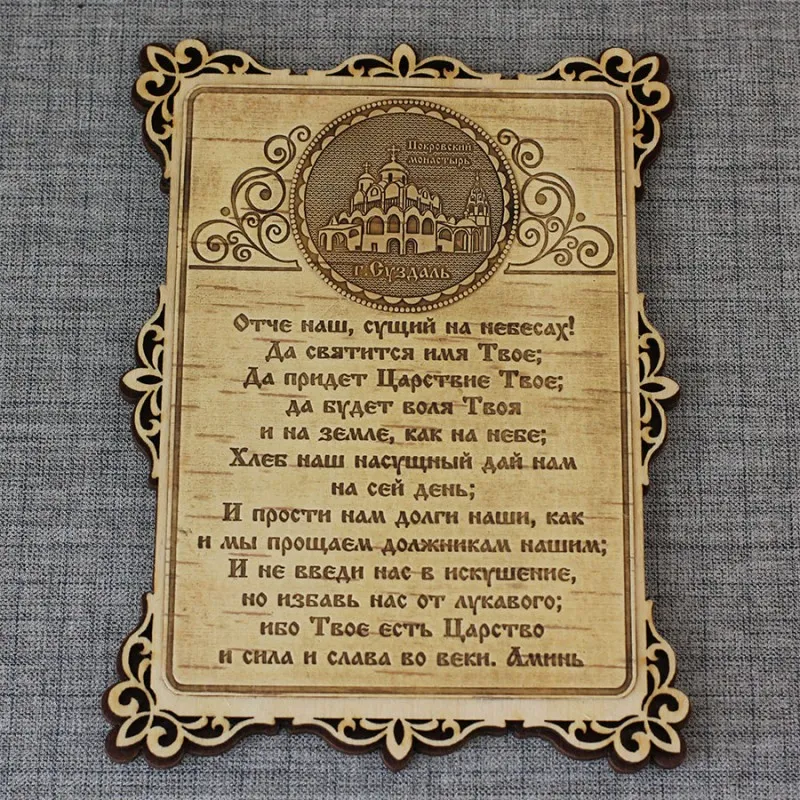 Покровский
монастырь
г. Суздаль
Отче наш, сущий на небесах!
Да святится имя Твое;
Да придет Царствие Твое;
да будет воля Твоя
и на земле, как на небе;
Хлеб наш насущный дай нам
на сей день;
И прости нам долги наши, как
и мы прощаем должникам нашим;
И не введи нас в искушение,
но избавь нас от лукавого;
ибо Твое есть Царство
и сила и слава во веки. Аминь